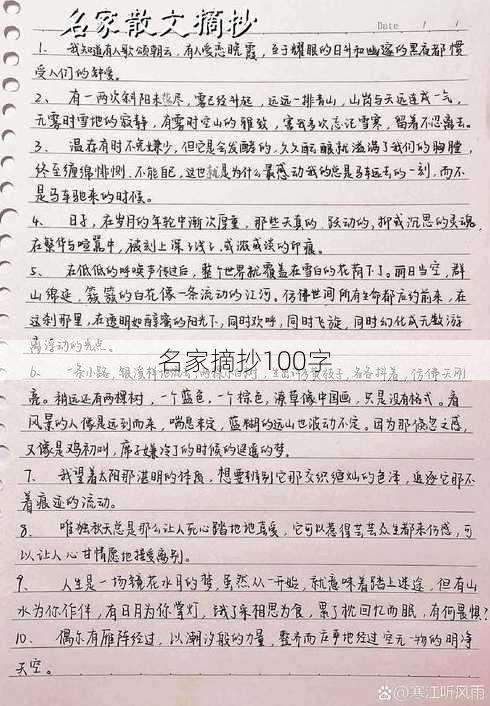 名家散文摘抄
Date / /
1、我知道有人歌颂朝云，有人爱恋晚霞，至于耀眼的日午和幽邃的黑夜都惯
受人们的钟爱。
2、有一两次斜阳未尽，雾已经升起，远远一排青山，山岗与天边连成一气，
无雾时雪地的寂静，有雾时空山的雅致，害我多次忘记雪寒，留着不忍离去。
3、温存有时不免嫌少，但它是会发酵的，久久酝酿就溢满了我们的胸膛，
终至缠绵悱恻，不能自已，这也就是为什么最感动我的总是马车远去的一刻，而不
是马车驰来的时候。
4、日子，在岁月的年轮中渐次厚重，那些天真的，跃动的，抑或沉思的灵魂，
在繁华与喧嚣中，被刻上深深浅浅，或浓或淡的印痕。
5、在低低的呼唤声传过后，整个世界就覆盖在雪白的花荫下了。丽日当空，群
山绵延，簇簇的白花像一条流动的江河。仿佛世间所有生命都应约前来，在
这刹那里，在透明如醇蜜的阳光下，同时欢呼，同时飞旋，同时幻化成无数游
离浮动的光点。
名家摘抄100字
6、一条小路，
亮。稍远还有两棵树，一个蓝色，一个棕色，潦草像中国画，只是没有格式。看
风景的人像是远到而来，喘息未定，蓝糊的远山也波动不定。因为那倏忽之感，
又像是鸡初叫，席子嫌冷了的时候的迢遥的梦。
7、我望着太阳那湛明的体质，想要辨别它那交织绚灿的色泽，追逐它那不
着痕迹的流动。
8、唯独秋天总是那么让人死心踏地地喜爱，它可以惹得芸芸众生都来伤感，可
以让人心甘情愿地接受离别。
9、人生是一场镜花水月的梦，虽然从一开始，就意味着踏上迷途，但有山
水为你作伴，有日月为你掌灯，饿了采相思为食，累了枕回忆而眠，有何畏惧？
10、偶尔有雁阵经过，以潮汐般的力量，整齐而庄严地经过空无一物的明净
天空。
@寒江听风雨